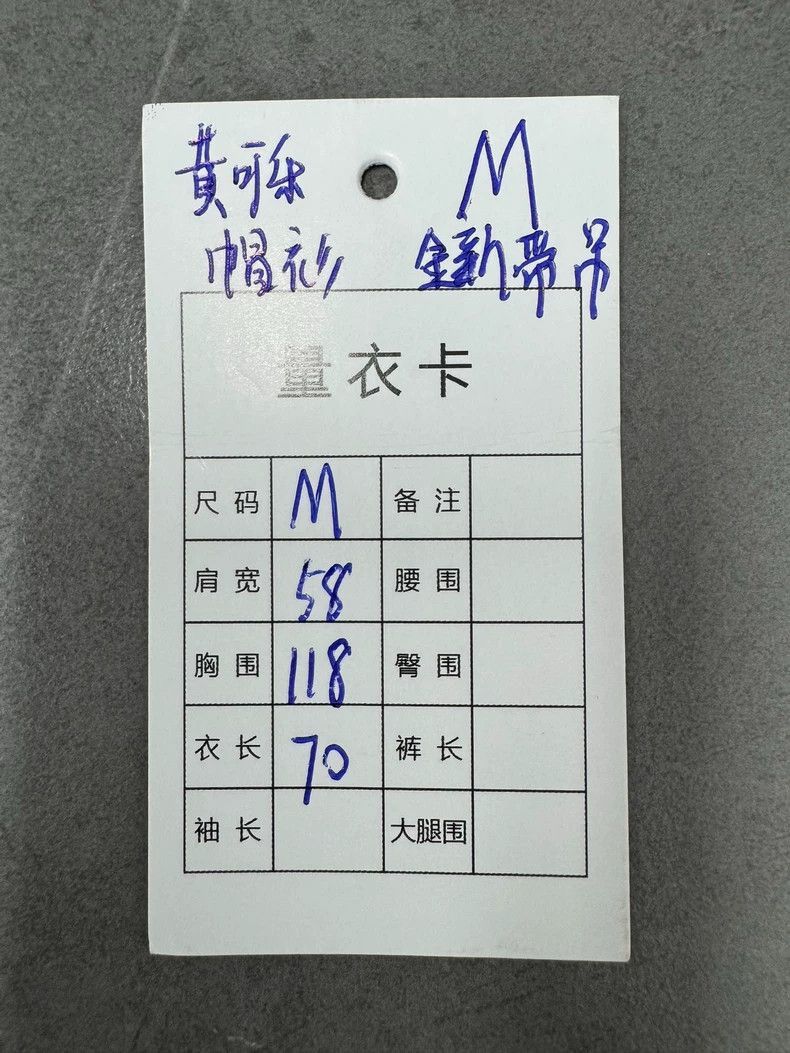 黄可乐 M
帽衫 全新带吊
量衣卡
尺码 M 备注
肩宽 58 腰围
胸围 118 臀围
衣长 70 裤长
袖长 大腿围